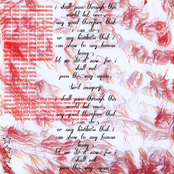 i shall pass through this
world but once.
any good therefore that
i can do
or any kindness that i
can show to any human
being
let me do it now. for i
shall not
pass this way again.
i shall pass through this
world but once.
any good therefore that
i can do
or any kindness that i
can show to any human
being
let me do it now. for i
shall not
pass this way again.